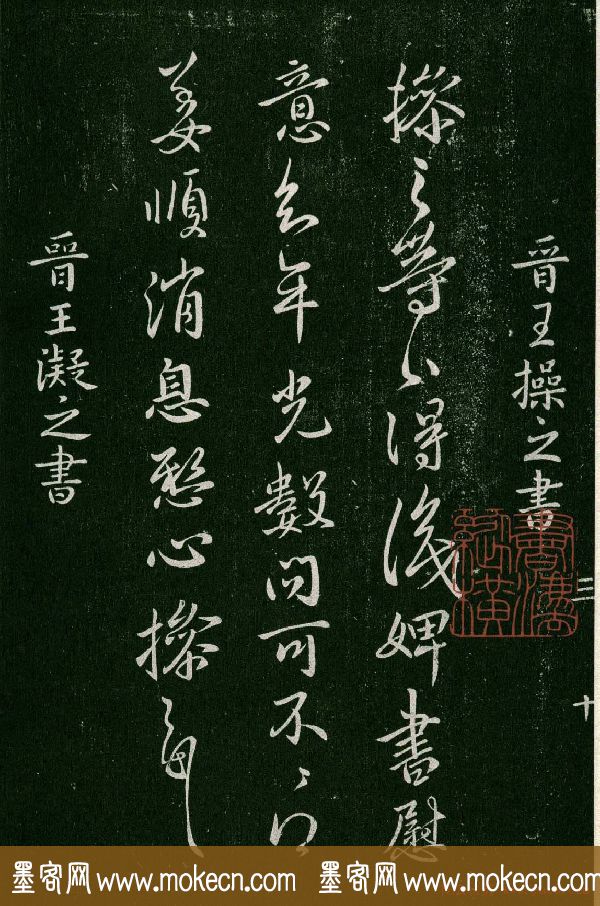 三十
晉王操之書
操之等得識婢書慰
意年光數問可不
姜順消息愁心操之
晉王凝之書
墨客网 www.mokecn.com 墨客网 www.mokecn.com